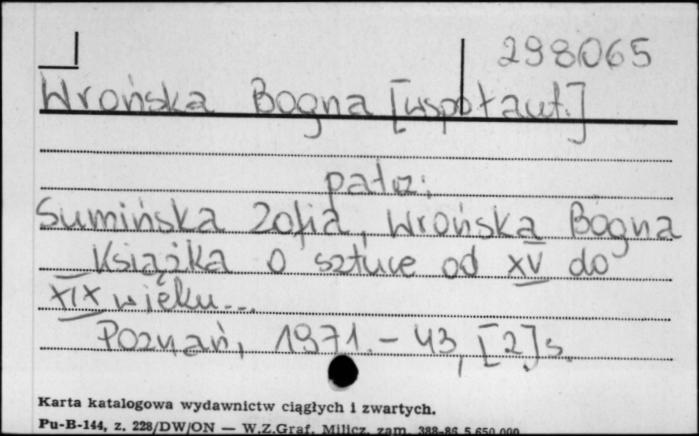 298065
Wrońska Bogna [współaut.]
patrz:
Sumińska Zofia, Wrońska Bogna
Książka o sztuce od XV do
XIX wieku...
Poznań, 1971. - 43, [2] s.
Karta katalogowa wydawnictw ciągłych i zwartych.
Pu-B-144, z. 228/DW/ON — W.Z.Graf. Milicz, zam. 388-86 5.650.000